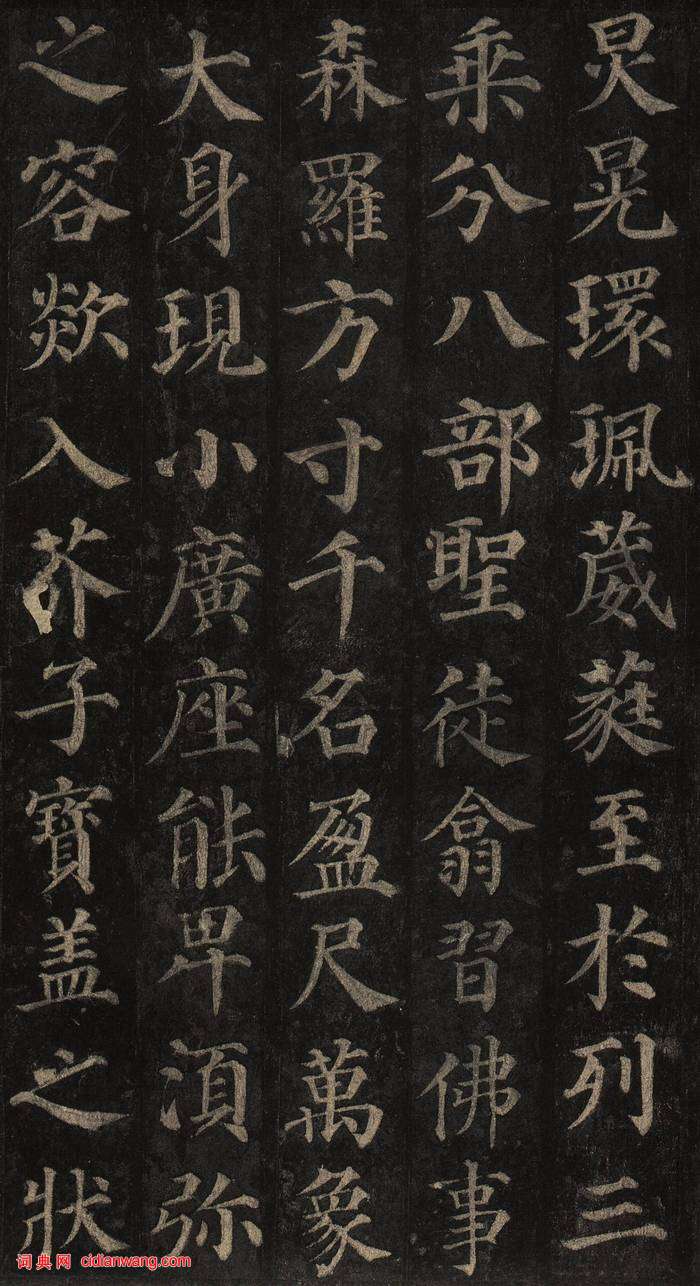 炅晃環珮葳蕤至於列三
乘分八部聖徒翕習佛事
森羅方寸千名盈尺萬象
大身現小廣座能卑須弥
之容欻入芥子寳盖之狀
词典网 cidianwang.com